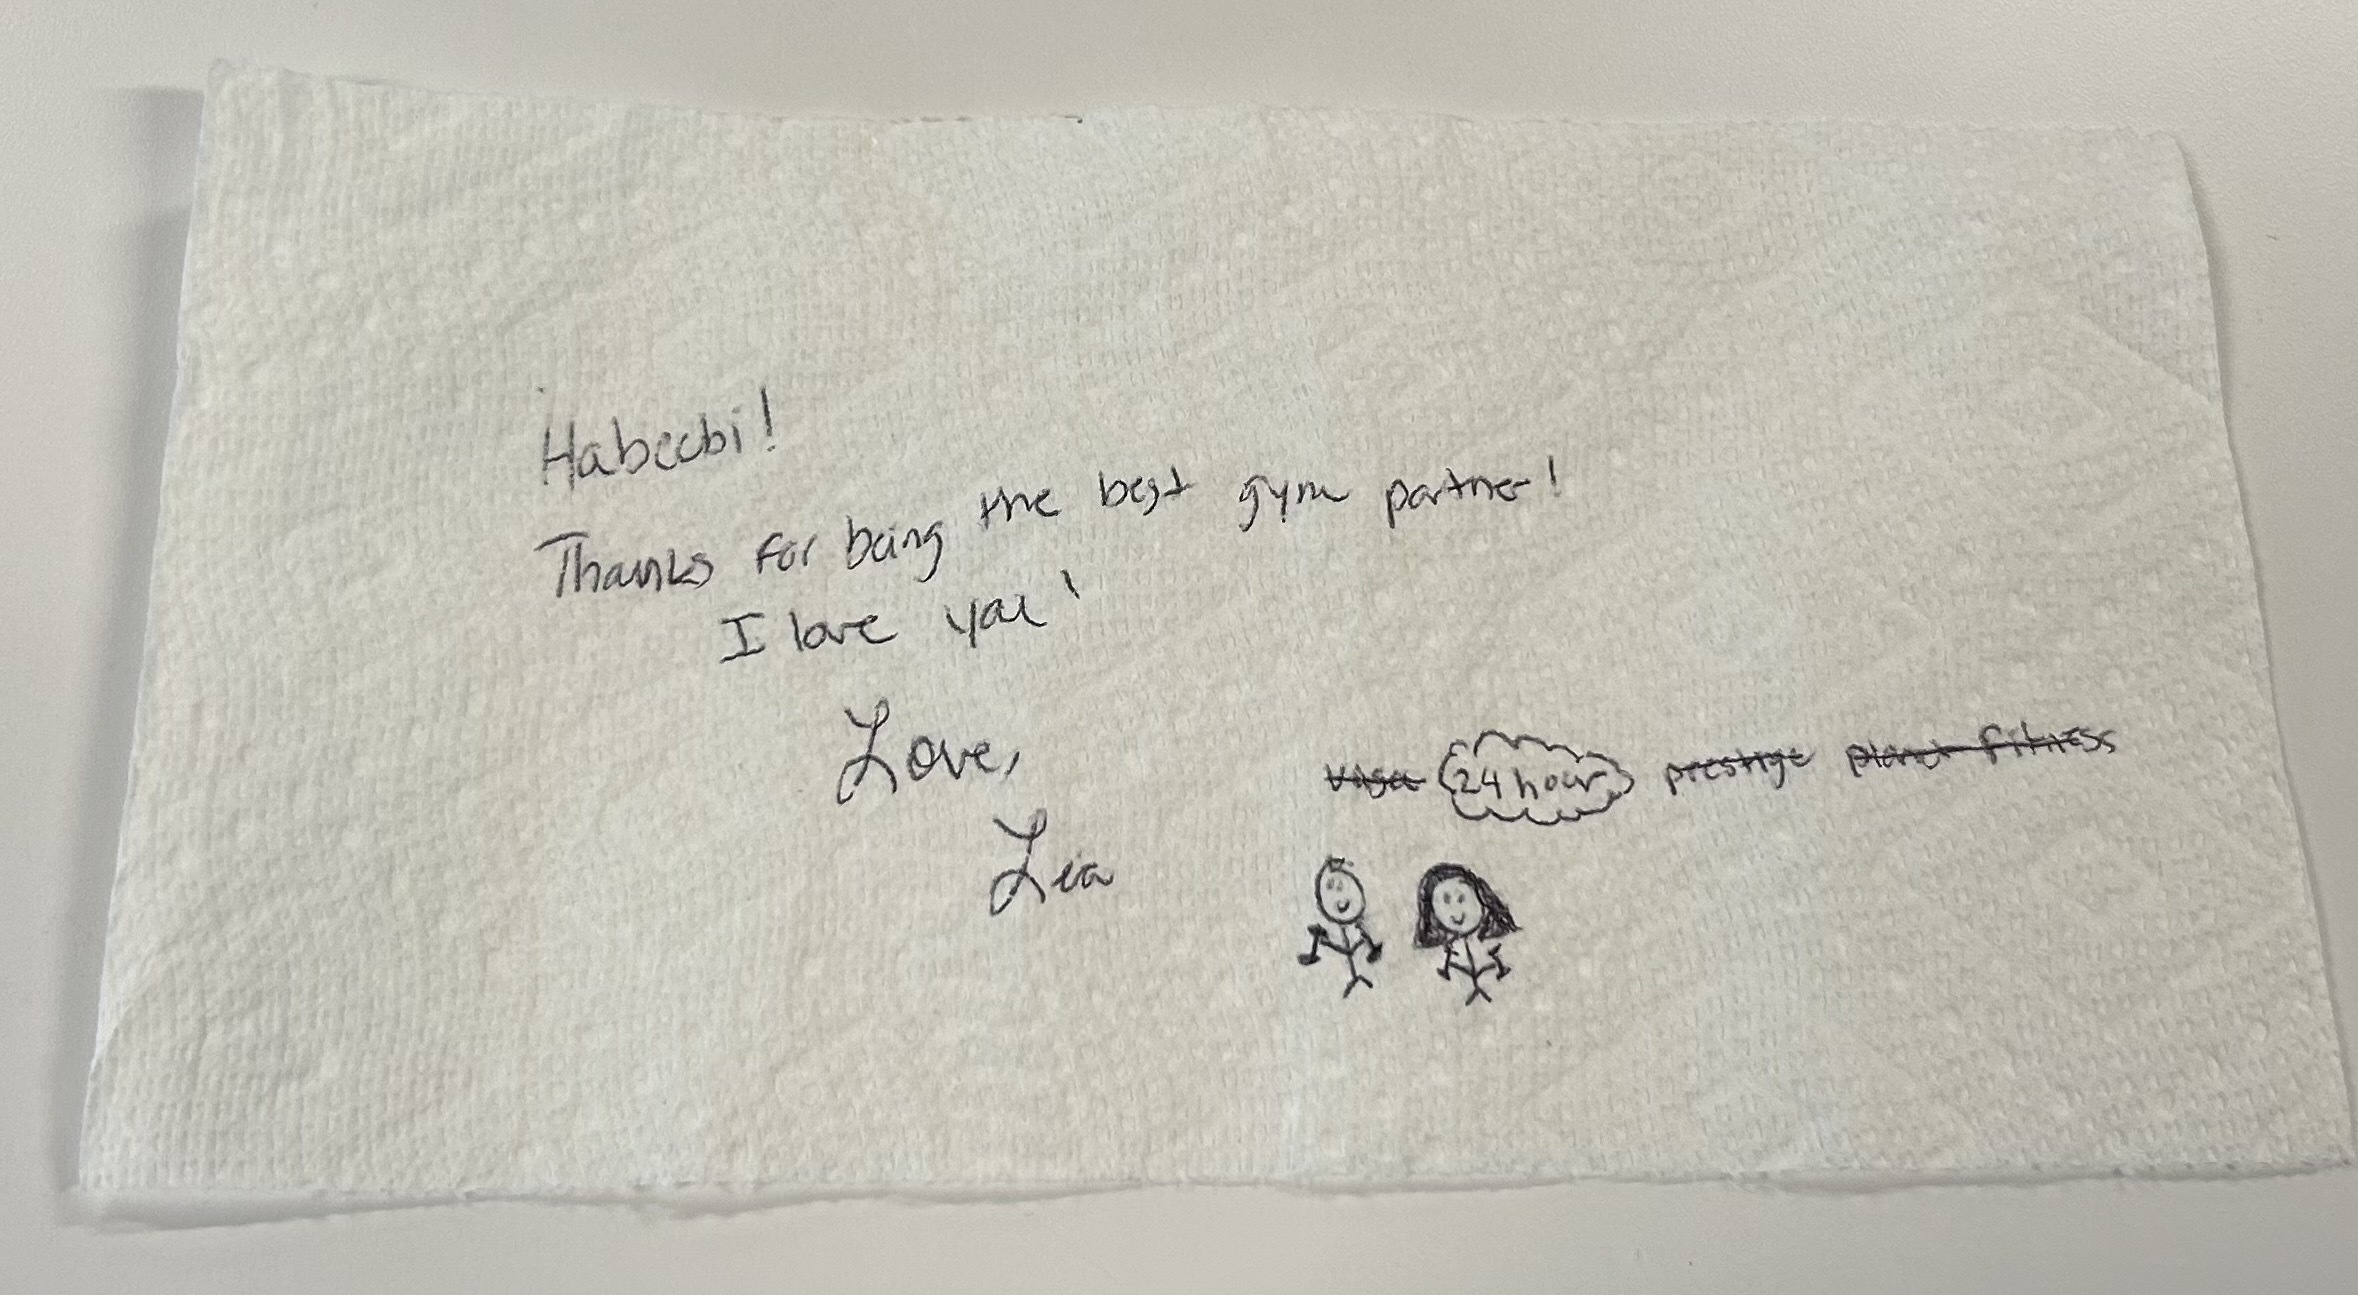 Habeebi!
Thanks for being the best gym partner!
I love you!
Love,
Lia
24 hour prestige planet fitness